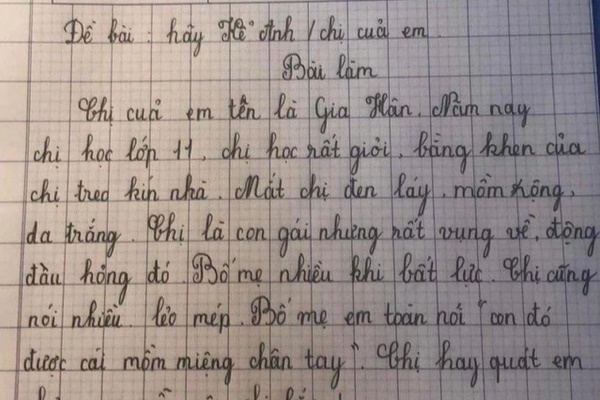 Đề bài : hãy Kể Anh / chị cuả em
Bài làm
Chị cuả em tên là Gia Hân. Năm nay
chị học lớp 11, chị học rất giỏi, bằng khen của
chị treo kín nhà. Mắt chị đen láy, mồm rộng,
da trắng. Chị là con gái nhưng rất vụng về, động
đâu hỏng đó. Bố mẹ nhiều khi bất lực. Chị cũng
nói nhiều, lẻo mép. Bố mẹ em toàn nói "con đó
được cái mồm miệng chân tay". Chị hay quát em